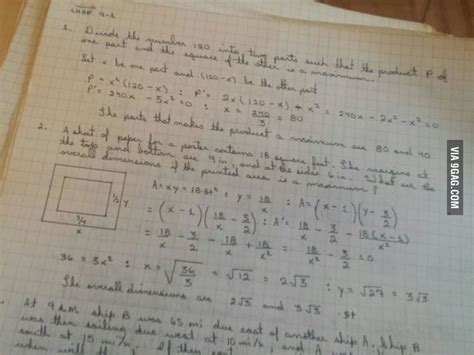 CHAP 4-2
1. Divide the number 120 into two parts such that the product P of
one part and the square of the other is a maximum.
Let x be one part and (120-x) be the other part
P = x²(120-x) : P' = 2x(120-x) x² = 240x - 2x² - x² = 0
P' = 240x - x² = 0 : x = 240/3 = 80
The parts that makes the product a maximum are 80 and 40
2. A sheet of paper for a poster contains 18 square feet. The margins at
the top and bottom are 9 in, and at the sides 6 in. What are the
overall dimensions if the printed area is a maximum?
A = xy = 18 : y = 18/x : A = (x-1)(y - 3/2)
= (x-1)(18/x - 3/2) : A' = 18/x - 3/2 - 18(x-1)/x²
= 18/x - 3/2 - 18/x + 18/x² = 18/x² - 3/2 = 0
36 = 3x² : x = √36/3 = √12 = 2√3 : y = √27 = 3√3
The overall dimensions are 2√3 and 3√3 ft
½
y
¾
x
At 9 A.M. ship B was 65 mi due east of another ship A. Ship B
was then sailing due west at 10 mi/h, and A
south at 15 mi/h. If they
when will
VIA 9GAG.COM